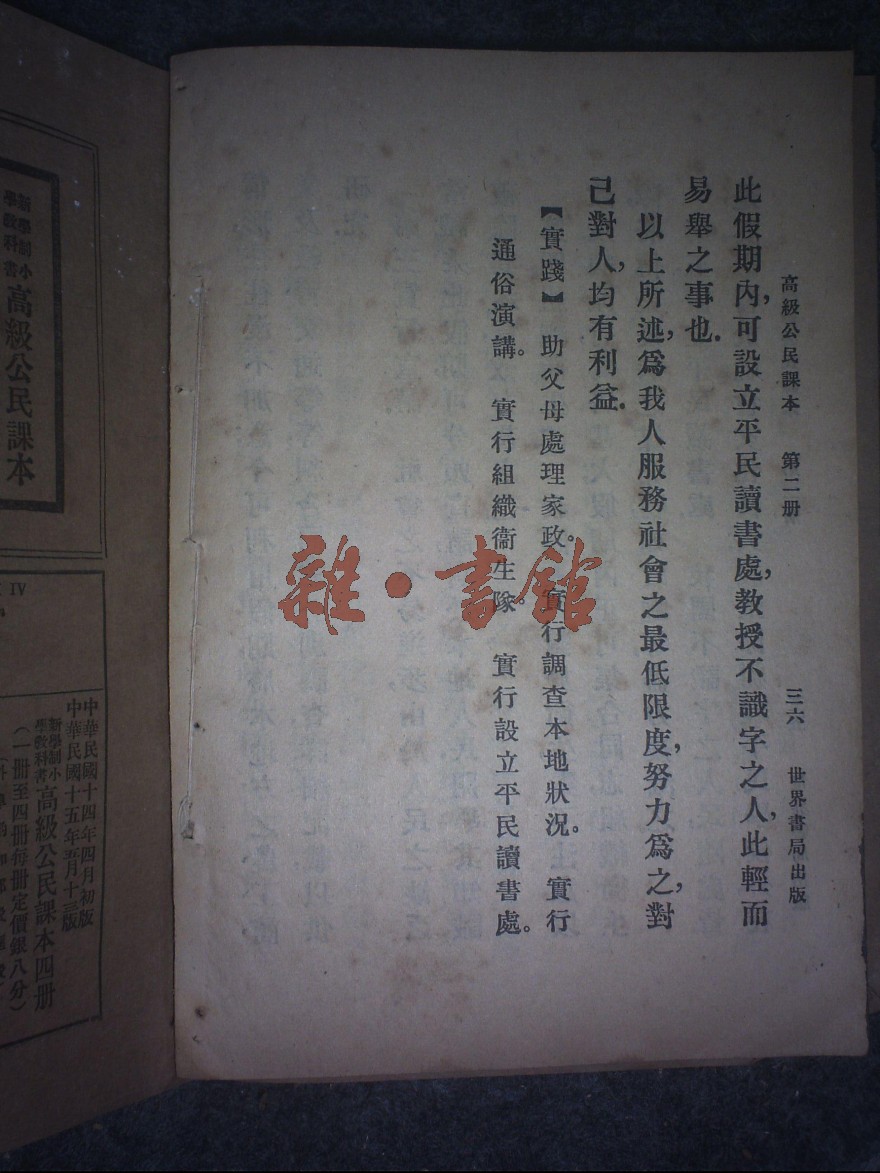 高級公民課本　第二册　三六　世界書局出版
此假期內,可設立平民讀書處,教授不識字之人,此輕而
易舉之事也.
以上所述,爲我人服務社會之最低限度,努力爲之,對
己對人,均有利益.
【實踐】　助父母處理家政。實行調查本地狀況。實行
通俗演講。　實行組織衞生隊。　實行設立平民讀書處。
雜·書館
新學制小
學教科書
高級公民課本
IV
中華民國十四年四月初版
中華民國十五年五月十三版
新學制小
學教科書
高級公民課本四册
(一册至四册每册定價銀八分)